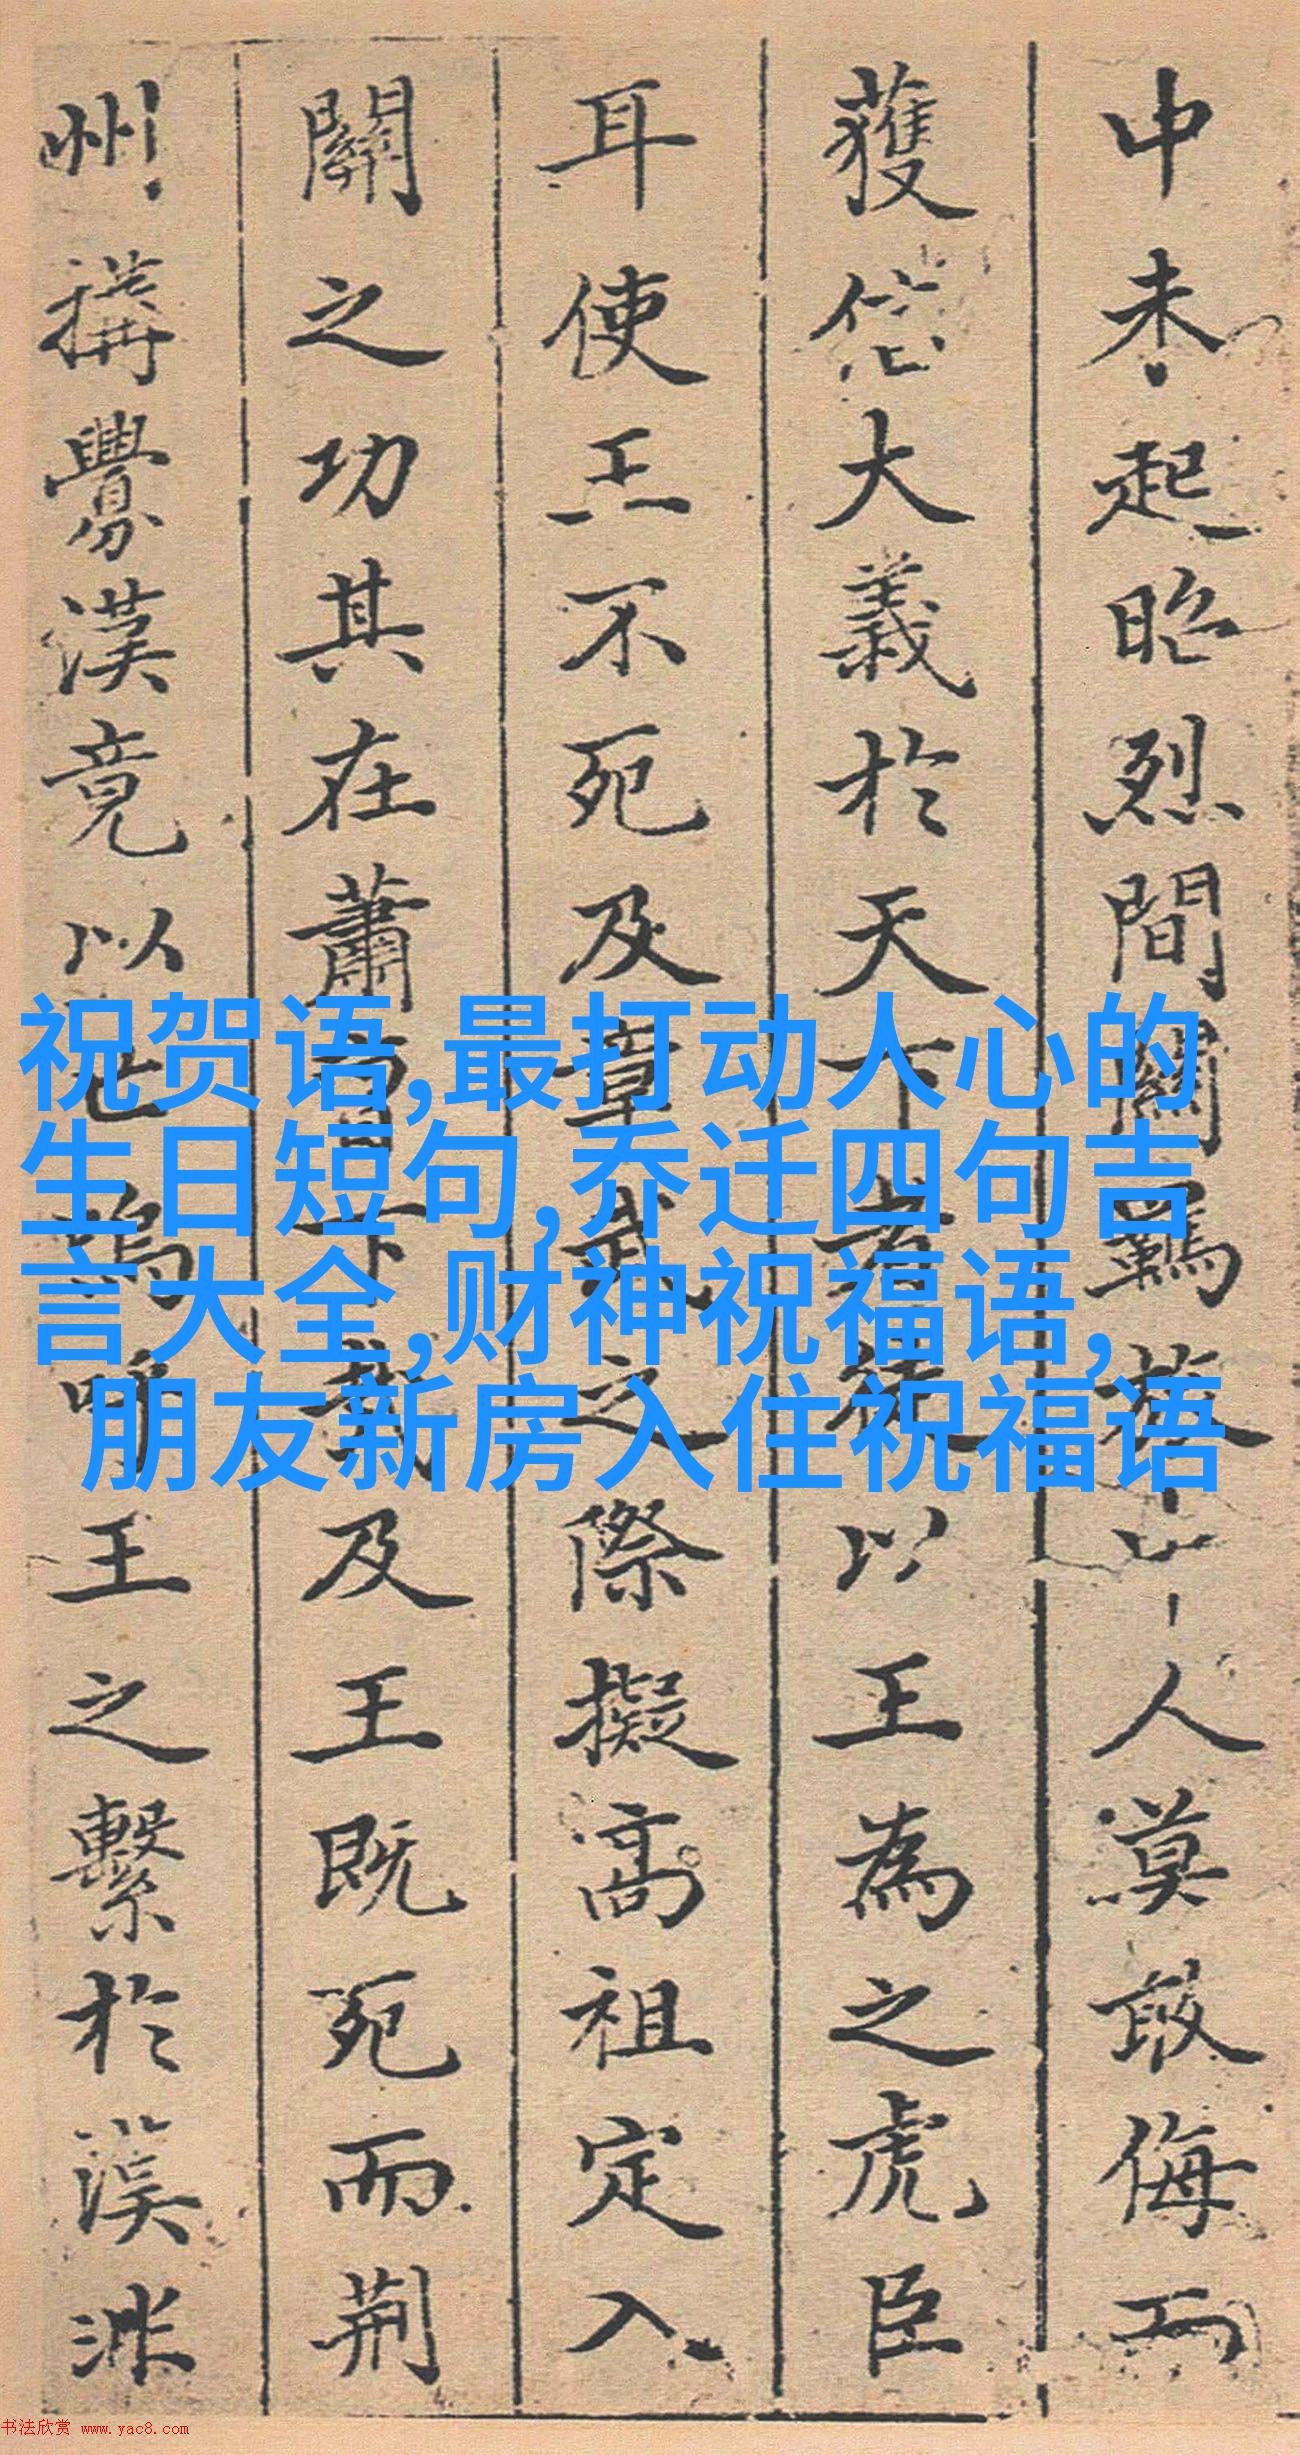 中未起昭烈間關羈旅 人莫敢侮而
獲信大義於天下者徒以王為之虎臣
耳使王不死及章武之際擬高祖定入
關之功其在蕭曹下哉及王既死而荊
州構釁漢竟以亡嗚呼王之繫於漢
祝贺语,最打动人心的
生日短句,乔迁四句吉
言大全,财神祝福语,
朋友新房入住祝福语
书法欣赏 www.yac8.com